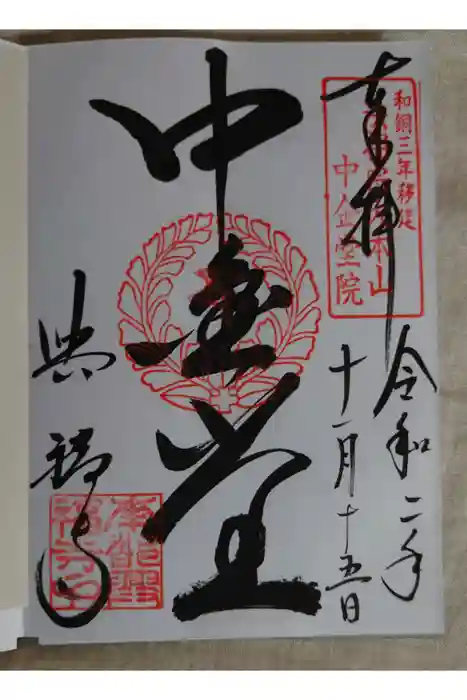 奉拝
和銅三年移建
本山
中金堂院
令和二年
十一月十五日
中金堂
興福寺